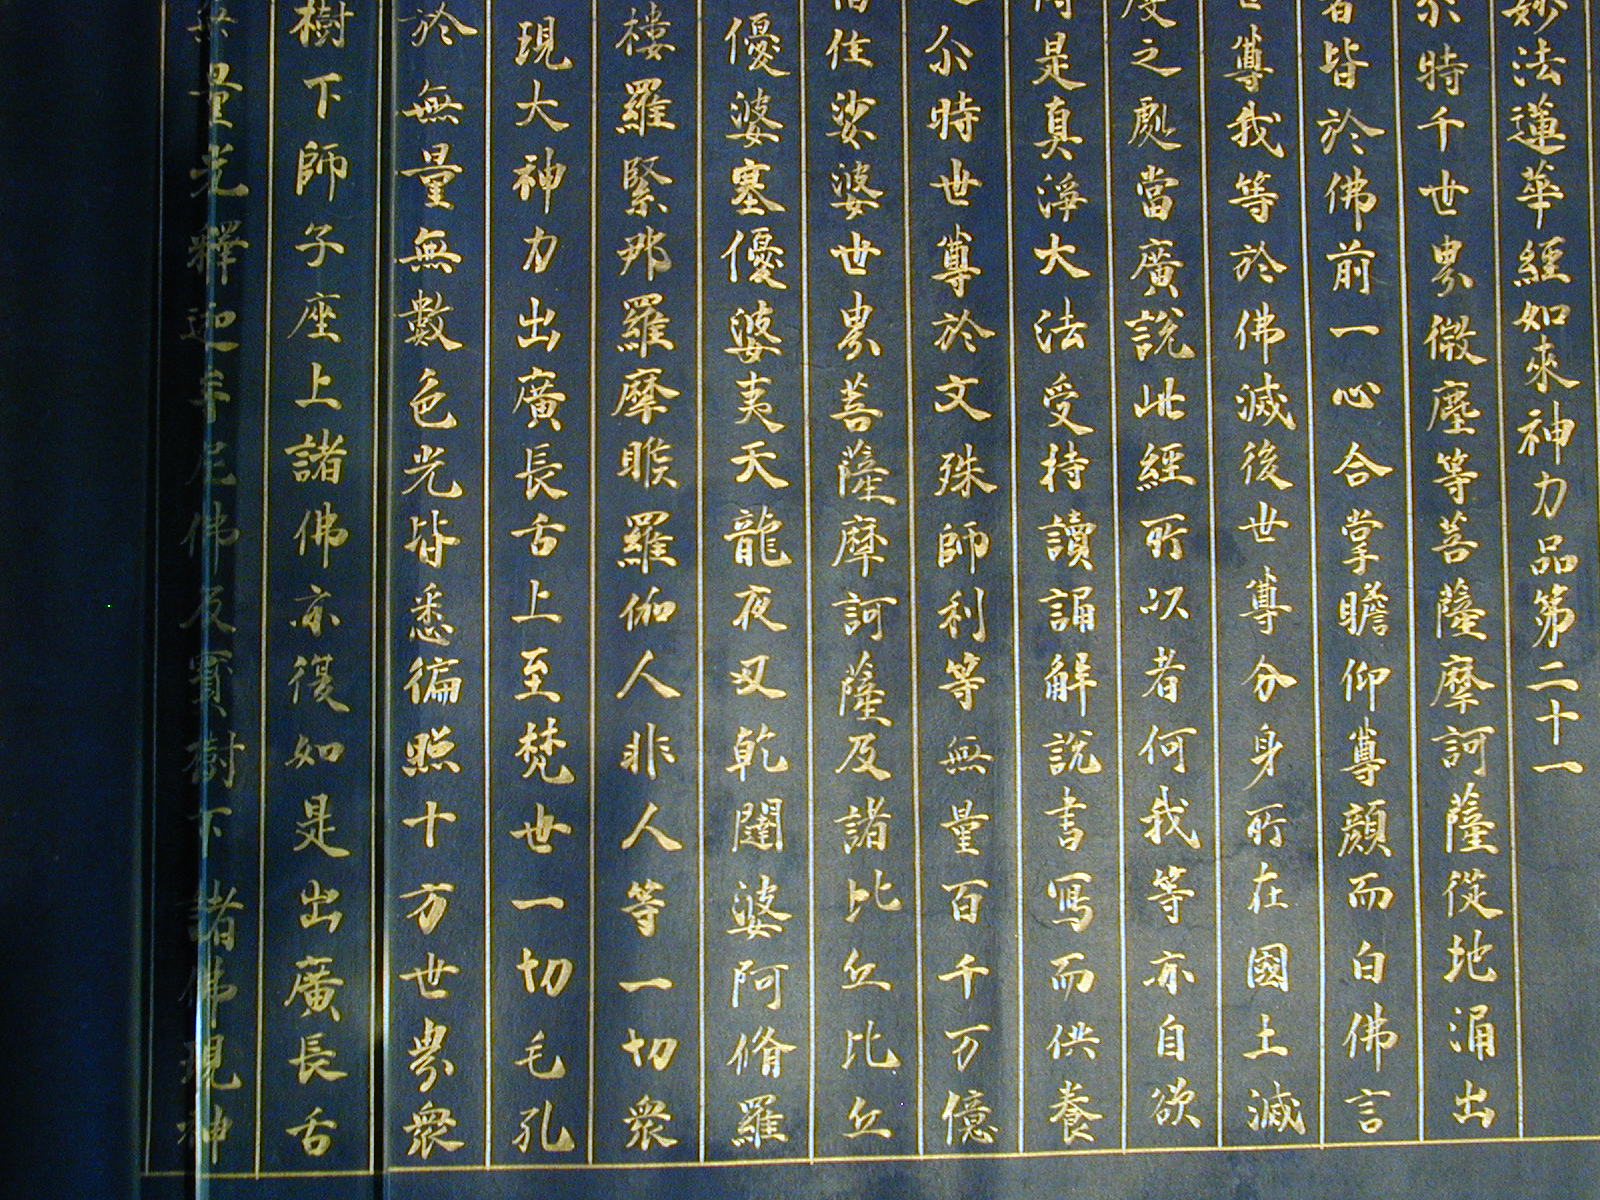 妙法蓮華經如來神力品第二十一
尒時千世界微塵等菩薩摩訶薩從地涌出
者皆於佛前一心合掌瞻仰尊顏而白佛言
世尊我等於佛滅後世尊分身所在國土滅
度之處當廣說此經所以者何我等亦自欲
得是真淨大法受持讀誦解說書寫而供養
之尒時世尊於文殊師利等無量百千万億
舊住娑婆世界菩薩摩訶薩及諸比丘比丘
優婆塞優婆夷天龍夜叉乾闥婆阿脩羅
樓羅緊那羅摩睺羅伽人非人等一切衆
現大神力出廣長舌上至梵世一切毛孔
於無量無數色光皆悉徧照十方世界衆
樹下師子座上諸佛亦復如是出廣長舌
無量光釋迦牟尼佛及寶樹下諸佛現神